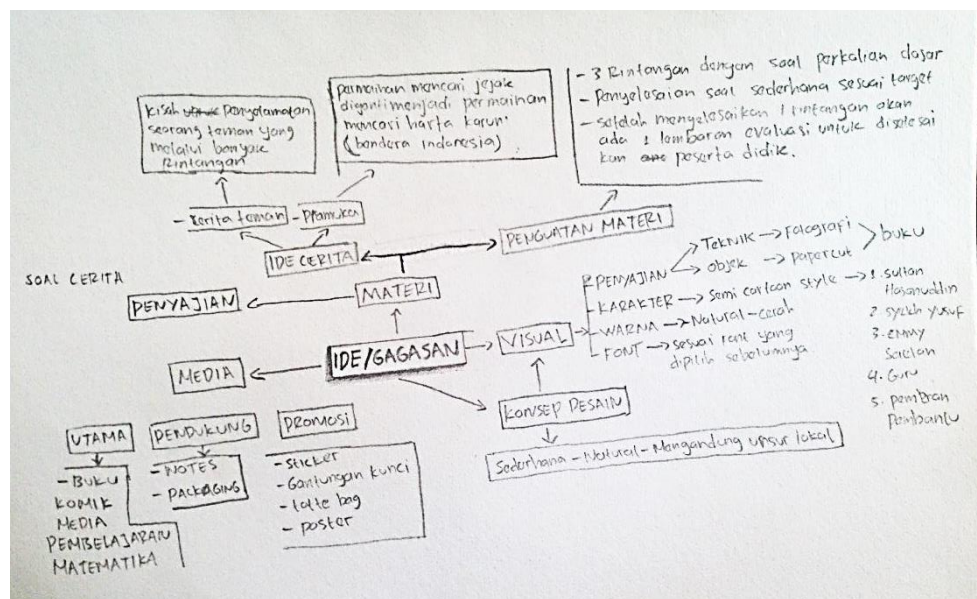 Kisah penyelamatan
seorang teman yang
melalui banyak
Rintangan
permainan mencari jejak
diganti menjadi permainan
mencari harta karun
(bendera Indonesia)
- 3 Rintangan dengan soal perkalian dasar
- Penyelesaian soal sederhana sesuai target
- setelah menyelesaikan 1 rintangan akan
ada 1 lembaran evaluasi untuk diselesai
kan peserta didik.
- Cerita teman
- Pramuka
IDE CERITA
PENGUATAN MATERI
SOAL CERITA
PENYAJIAN
MATERI
IDE/GAGASAN
MEDIA
VISUAL
KONSEP DESAIN
Sederhana - Natural - Mengandung unsur lokal
- PENYAJIAN
TEKNIK → Fotografi
objek → papercut
buku
- KARAKTER → Semi cartoon style → 1. Sultan
Hasanuddin
2. syekh yusuf
3. Emmy
Saelan
4. Guru
5. pemeran
Pembantu
- WARNA → Natural-cerah
- FONT → sesuai font yang
dipilih sebelumnya
UTAMA
- BUKU
KOMIK
MEDIA
PEMBELAJARAN
MATEMATIKA
PENDUKUNG
- NOTES
- PACKAGING
PROMOSI
- Sticker
- Gantungan kunci
- totte bag
- poster